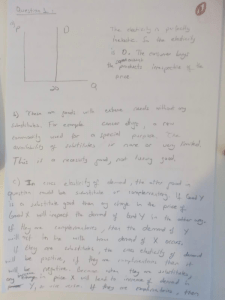 Question 2.1
P
D
20
Q
The elasticity is perfectly
inelastic. I.e the elasticity
is 0. The consumer buys
the products irrespective of the
price.
b) These are goods with extreme needs without any
substitutes. For example cancer drugs, a non
commonly used for a special purpose. The
availability of substitutes is none or very limited.
This is a necessity good, not luxury good.
c) In cross elasticity of demand, the other good in
question could be substitute or complementary. If Good Y
is a substitute good then any change in the price of
Good X will impact the demand of Good Y in the other way.
If they are complementary, then the demand of Y
will if the
if they are substitutes the cross elasticity of demand
will be positive, if they are complementary then it
will be negative. Because when they are substitutes
any change in price X will lead to increase of demand in
Y, if they are complementary, then